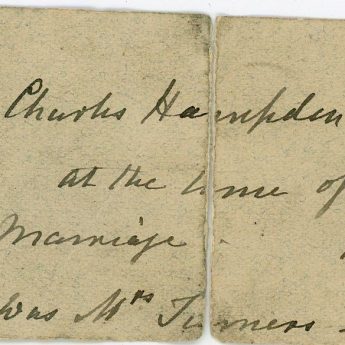 Charles Hampden
at the time of
Marriage.
was Mrs Turners